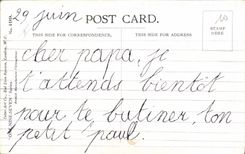 29 juin
POST CARD.
STAMP
HERE
THIS SIDE FOR CORRESPONDENCE.
THIS SIDE FOR ADDRESS.
cher papa, je
t'attends bientôt
pour te butiner, ton
petit paul.